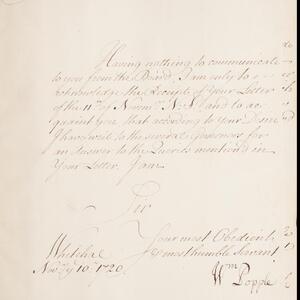 Having nothing to communicate
to you from the Board, I am only to
Acknowledge the Receipt of Your Letter
of the 11th of Novemr N:S: and to ac
quaint you that according to your Desire
I have writ to the several Governors for
an Answer to the Queries mention'd in
Your Letter. I am
Sir
Your most Obedient
& most humble Servant
Whitehal
Novr 10th 1720
Wm Popple